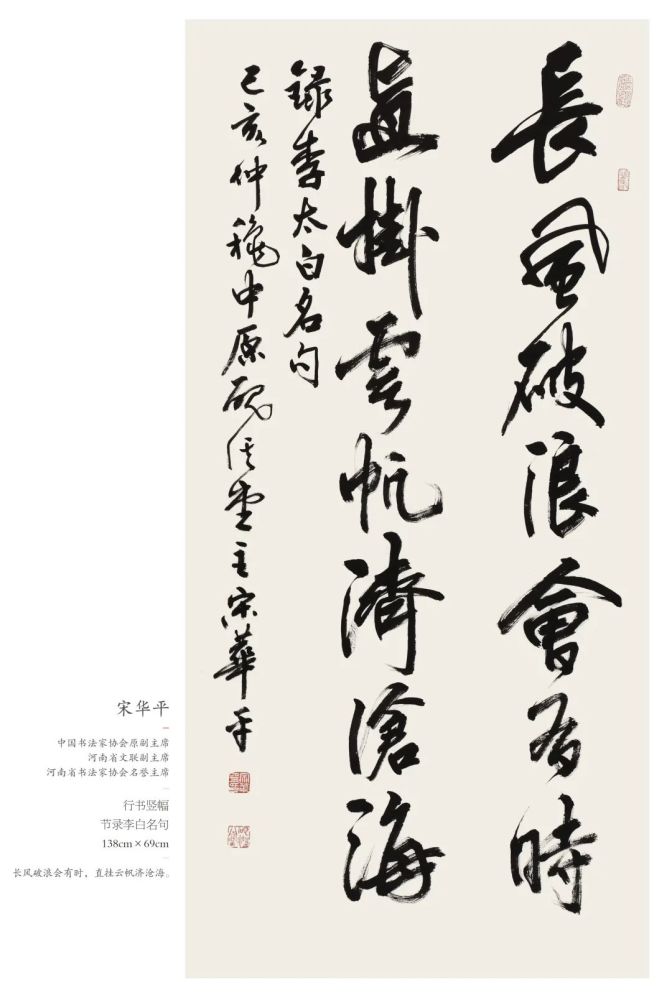 長風破浪會有時
直掛雲帆濟滄海
録李太白名句
己亥仲穐中原砚主宋華平
宋华平
中国书法家协会原副主席
河南省文联副主席
河南省书法家协会名誉主席
行书竖幅
节录李白名句
138cm×69cm
长风破浪会有时，直挂云帆济沧海。